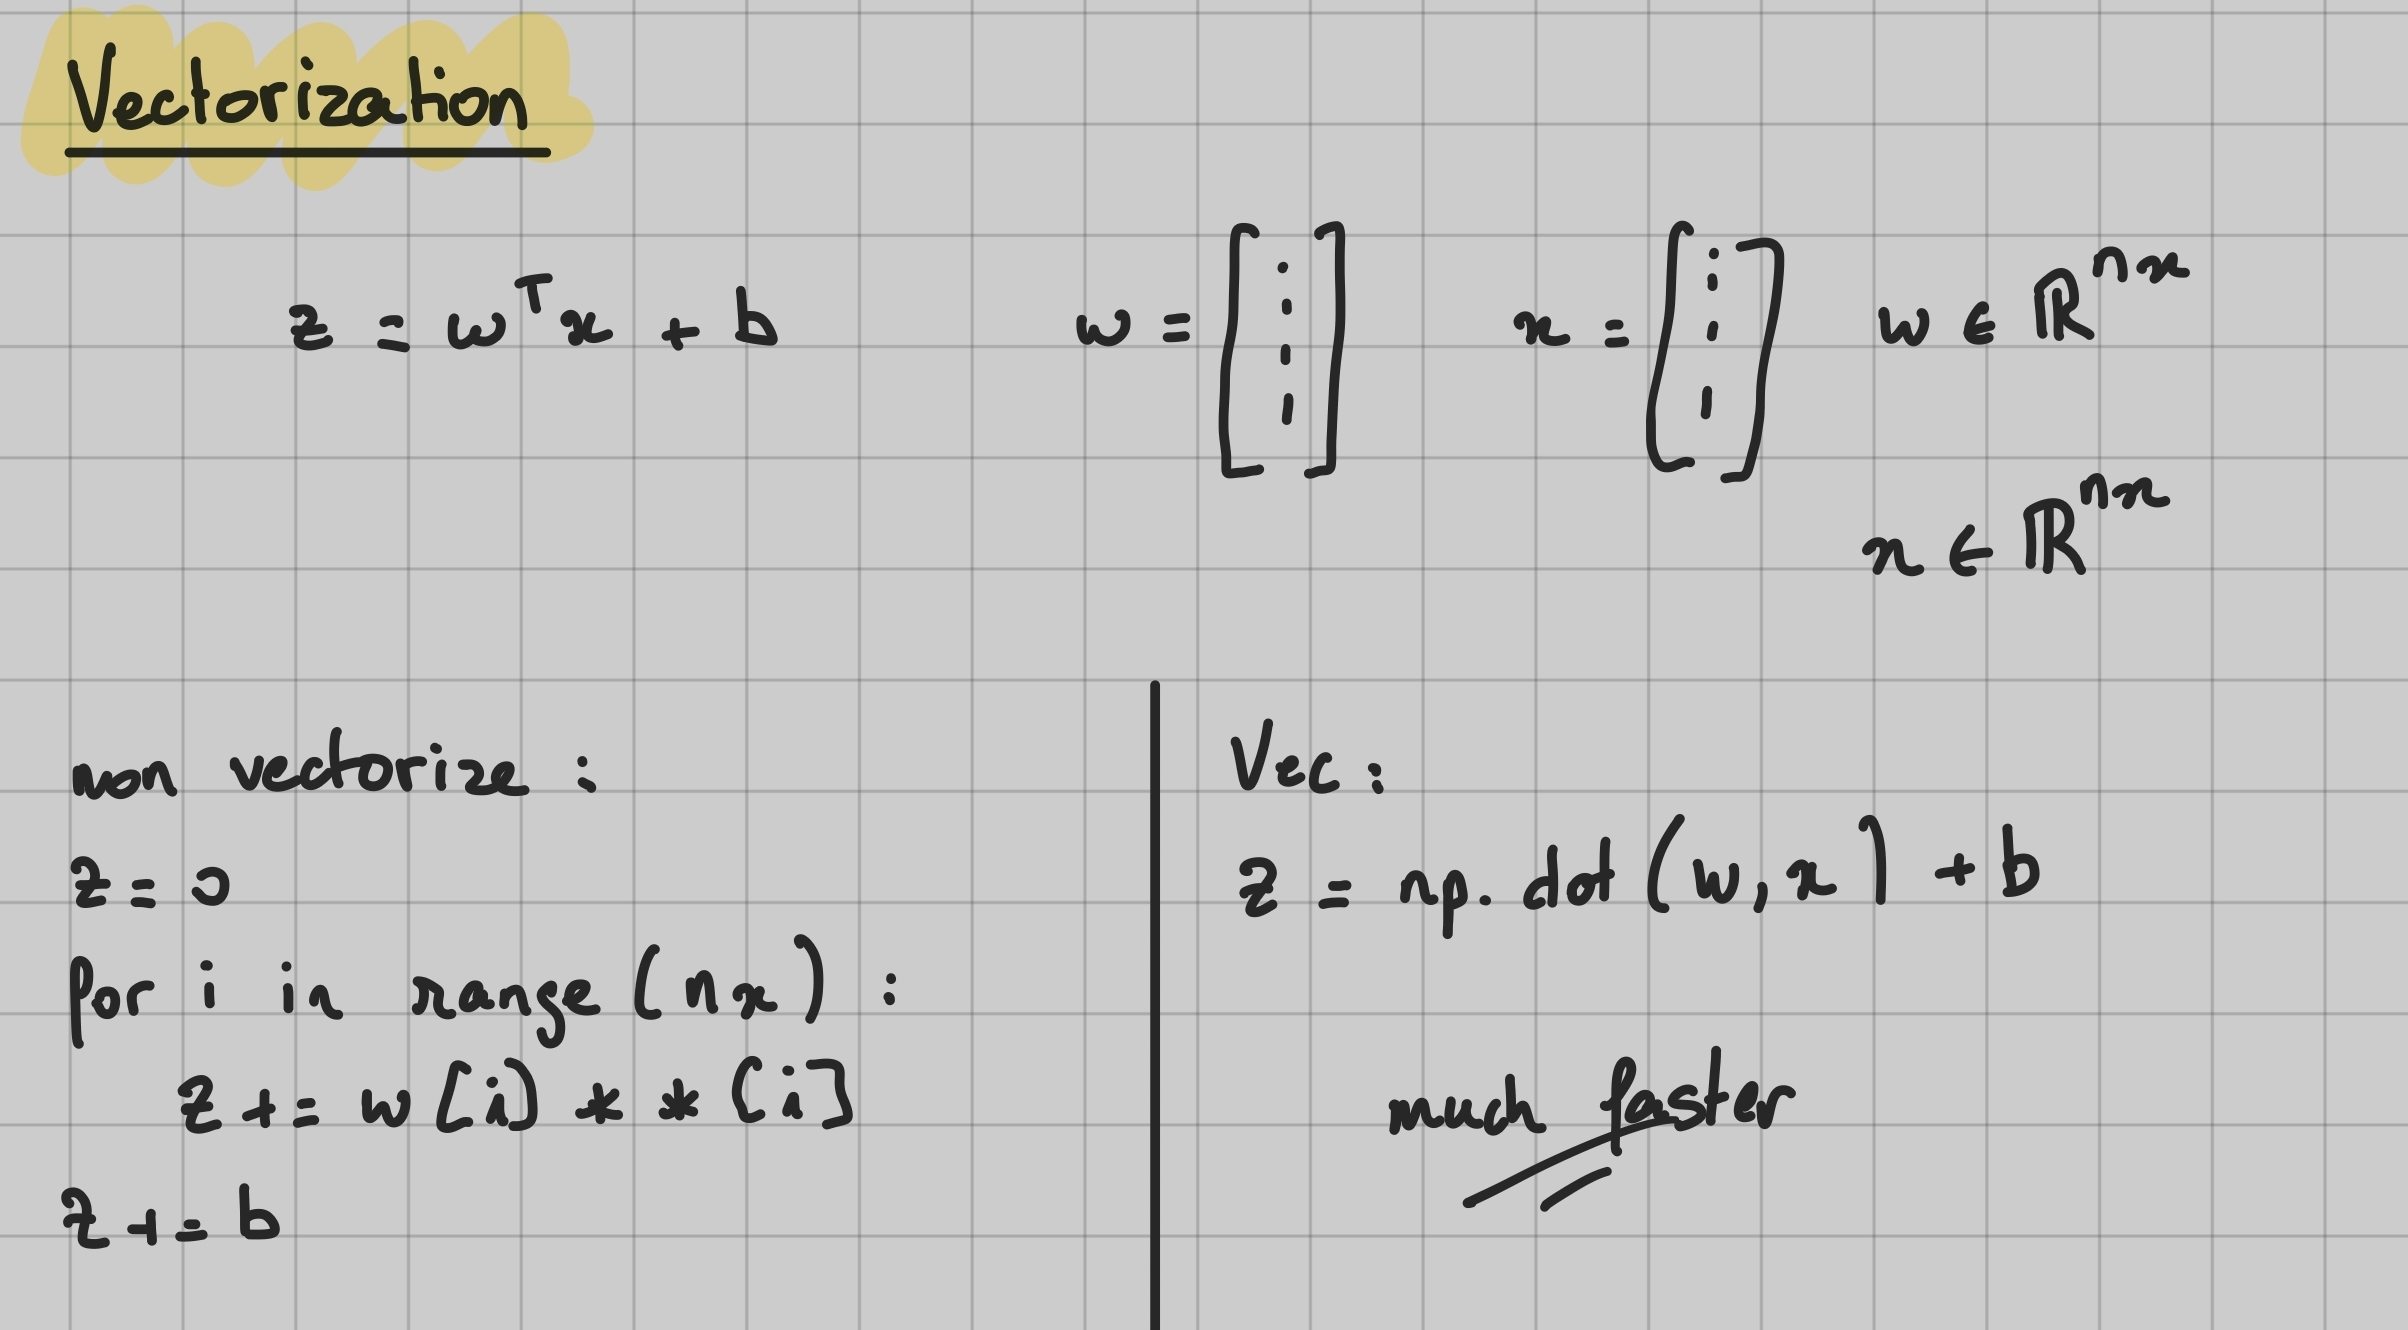 Vectorization
z = w^T x + b    w = [⋮]    x = [⋮]    w ∈ ℝ^nx
x ∈ ℝ^nx
non vectorize :
z = 0
for i in range (nx) :
z += w [i] * * [i]
z += b
Vec :
z = np. dot (w, x) + b
much faster